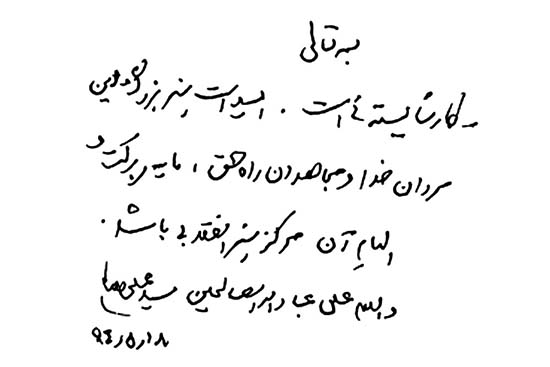 بسمه تعالی
کار شایسته ئی است . امید است هنر این
مردان خدا و مجاهدان راه حق ، مایه ی برکت و
الهام آن مرکز هنر انقلابی باشد .
والسلام علی عباد الله الصالحین سید علی خامنه‌ای
۹۴ر۵ر۱۸